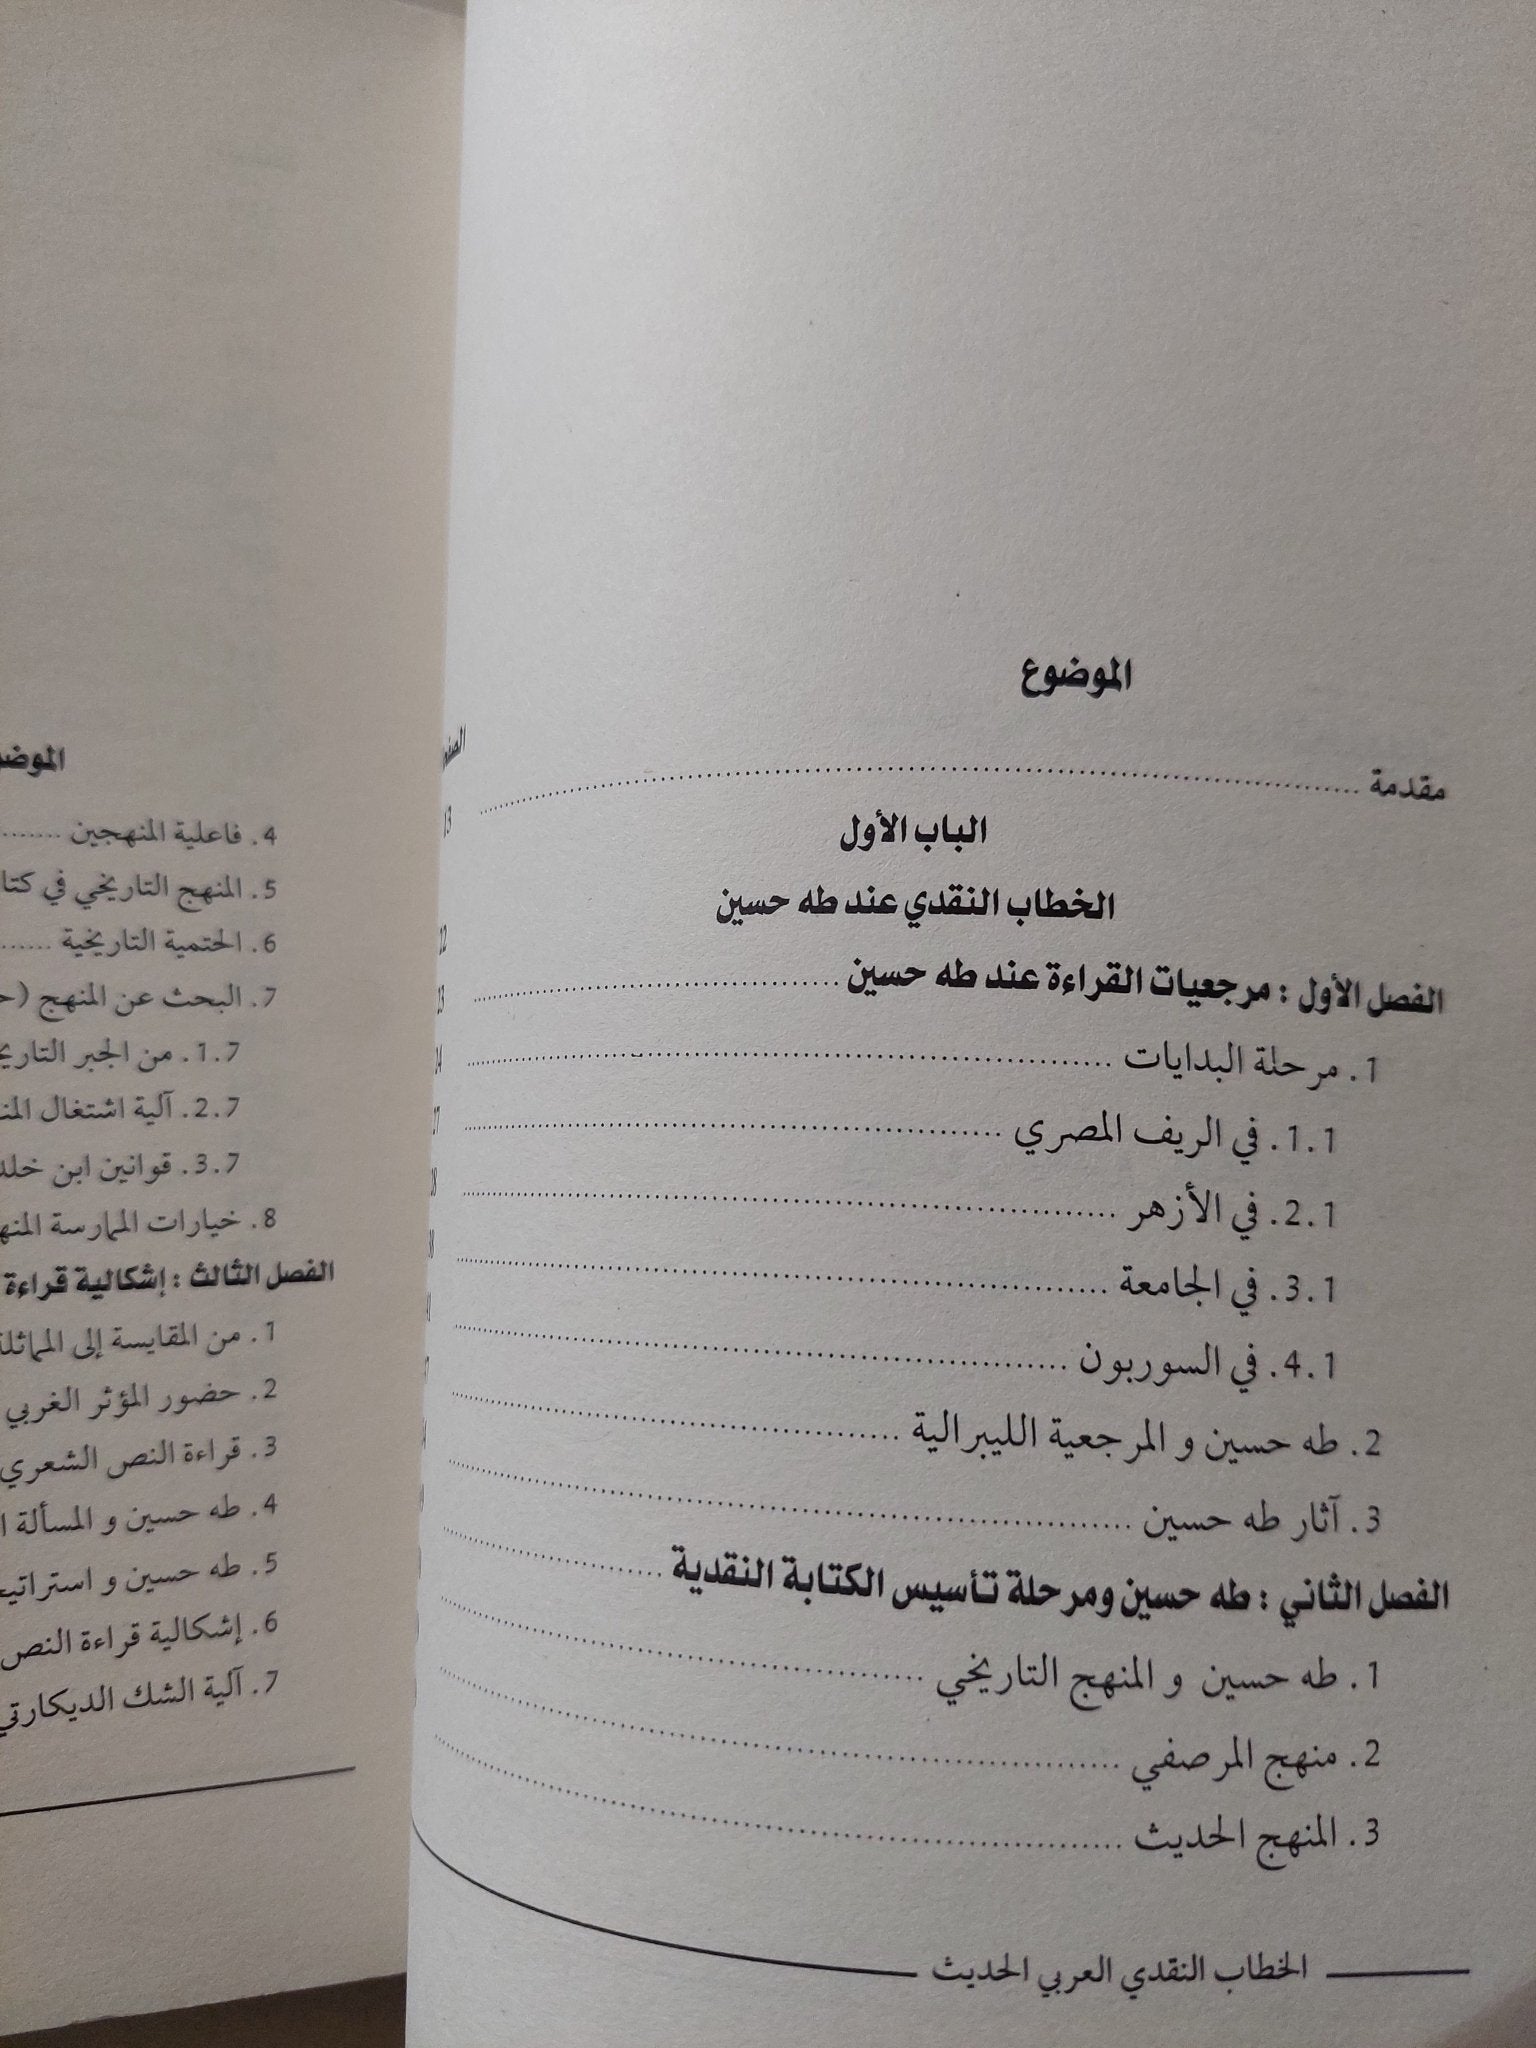 الموضوع
مقدمة
13
الباب الأول
الخطاب النقدي عند طه حسين
22
الفصل الأول : مرجعيات القراءة عند طه حسين
23
1. مرحلة البدايات
24
1.1. في الريف المصري
2.1. في الأزهر
3.1. في الجامعة
4.1. في السوربون
2. طه حسين و المرجعية الليبرالية
3. آثار طه حسين
الفصل الثاني : طه حسين ومرحلة تأسيس الكتابة النقدية
1. طه حسين و المنهج التاريخي
2. منهج المرصفي
3. المنهج الحديث
الخطاب النقدي العربي الحديث
4. فاعلية المنهجين
5. المنهج التاريخي في
6. الحتمية التاريخية
7. البحث عن المنهج
1.7. من الجبر
2.7. آلية اشتغال
3.7. قوانين ابن
8. خيارات الممارسة
الفصل الثالث : إشكالية قراءة
1. من المقايسة إلى
2. حضور المؤثر الغربي
3. قراءة النص الشعري
4. طه حسين و المسألة
5. طه حسين و
6. إشكالية قراءة النص
7. آلية الشك الديكارتي